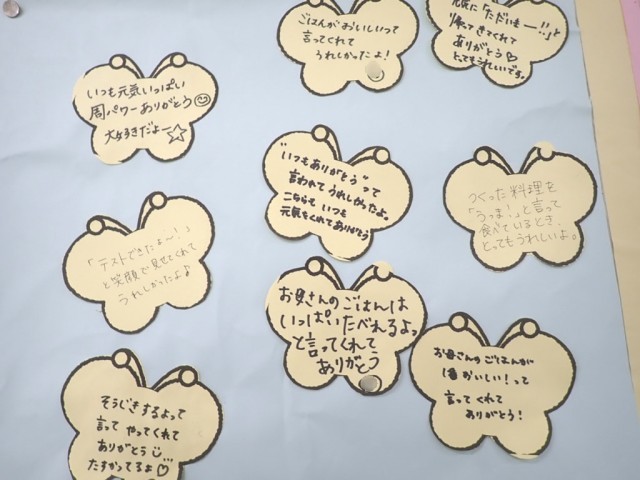 ごはんがおいしいって
言ってくれて
うれしかったよ！
元気に「ただいまー!!」と
帰ってきてくれて
ありがとう♡
とってもうれしいです。
いつも元気いっぱい
周パワーありがとう☺
大好きだよー☆
"いつもありがとう"って
言われてうれしかったよ。
こちらも いつも
元気をくれてありがとう
つくった料理を
「うっま！」と言って
食べているとき、
とってもうれしいよ。
「テストできたよ〜！」
と笑顔で見せてくれて
うれしかったよ♪
お母さんのごはんは
いっぱいたべれるよっ
と言ってくれて
ありがとう
お母さんのごはんが
1番おいしい！って
言ってくれて
ありがとう！
そうじきするよって
言って やってくれて
ありがとう
たすかってるよ♡